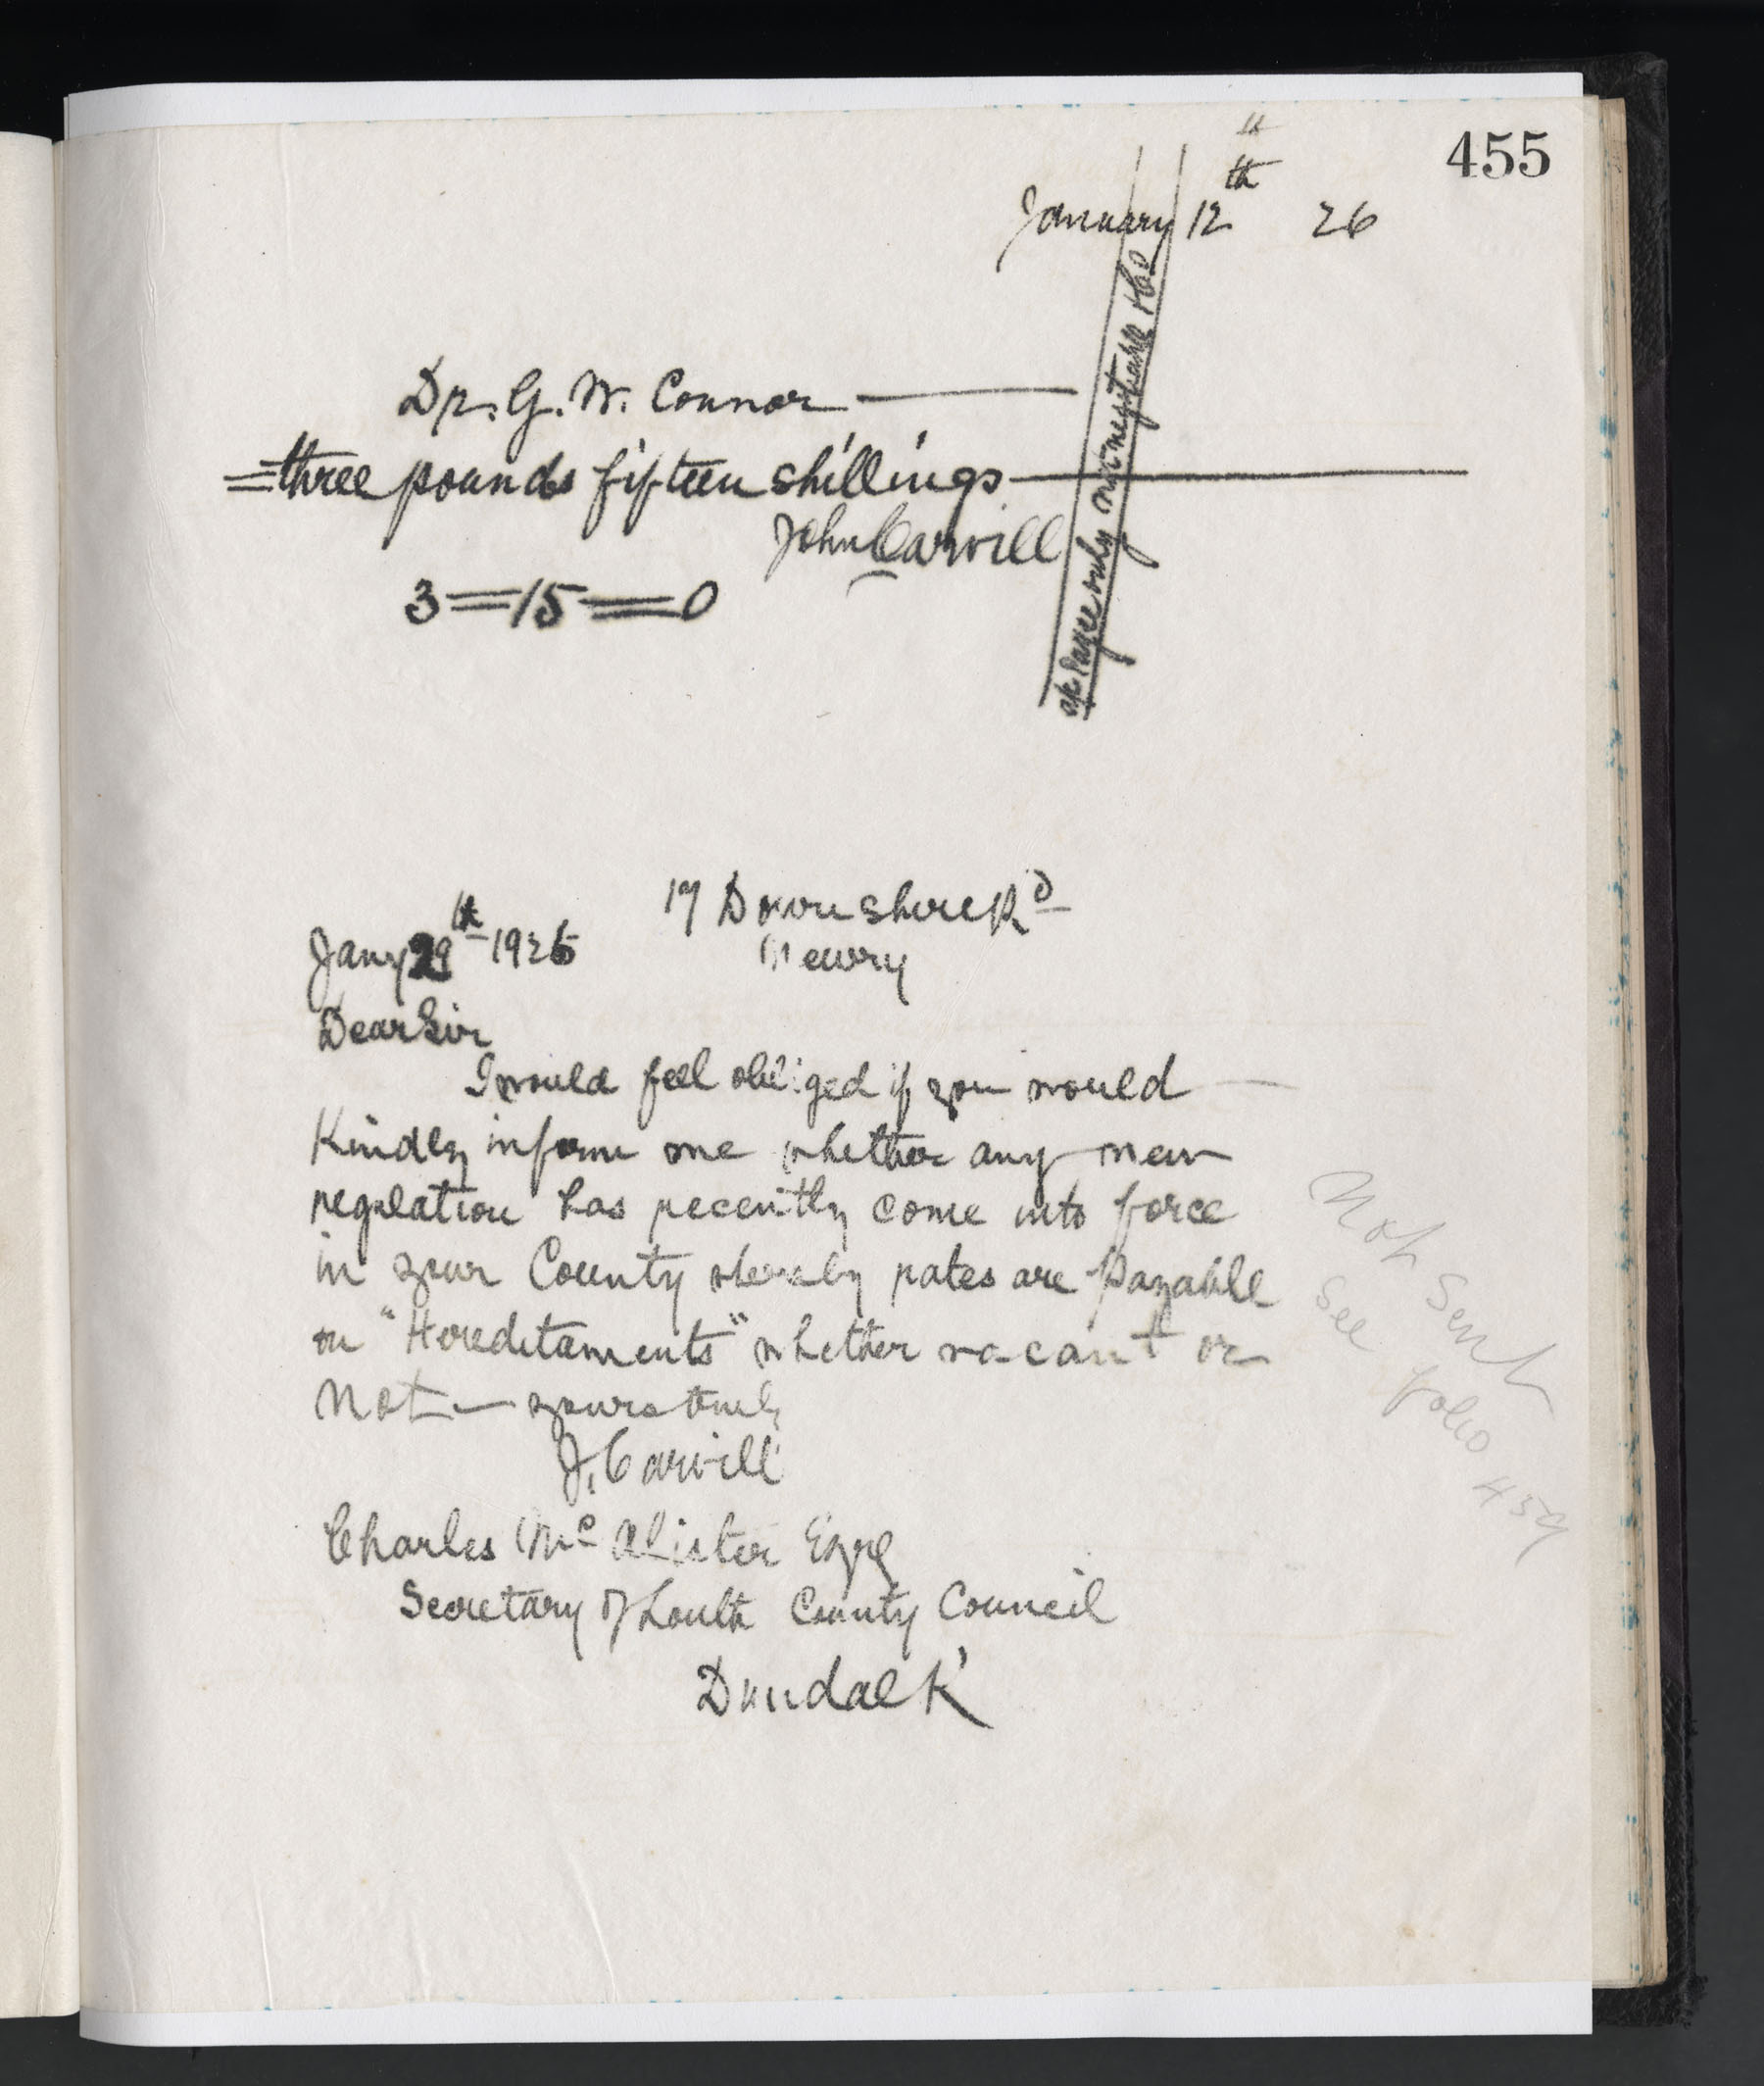 455
January 12th 26
Dr. G. W. Connor
three pounds fifteen shillings
John Carvill
3=15=0
a/c Payee only not negotiable & Co
17 Devonshire Rd
Newry
Jany 29th 1926
Dear Sir
I would feel obliged if you would
Kindly inform me whether any new
regulation has recently come into force
in your County whereby rates are payable
on "Hereditaments" whether vacant or
Not — yours truly
J. Carvill
Charles McAlister Esqre
Secretary of Louth County Council
Dundalk
Not Sent
See folio 459